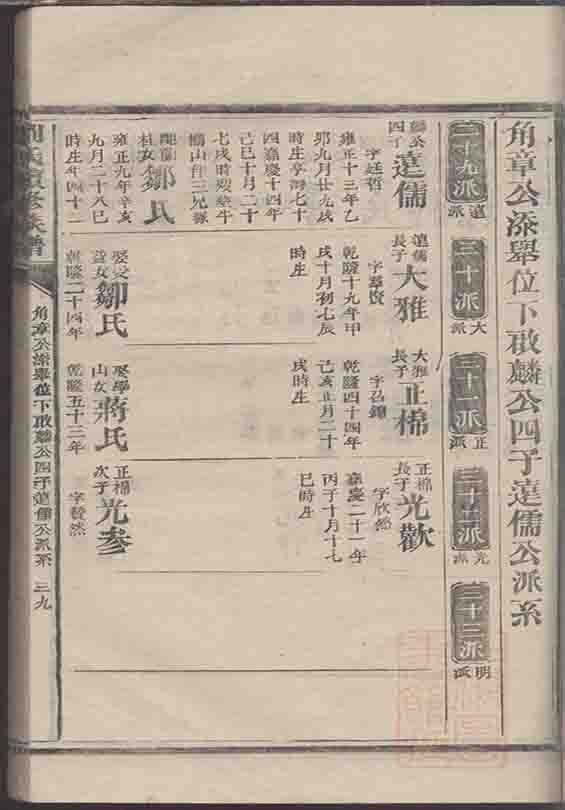 角章公添舉位下敢麟公四子蓬儒公派系
二十九派
蓬派
三十派
大派
三十一派
正派
三十二派
光派
三十三派
明派
麟公
四子
蓬儒
字廷哲
雍正十三年乙
卯九月廿九戌
時生享壽七十
四嘉慶十四年
己巳十月二十
七戌時歿葬牛
兄豚
鄒氏
雍正九年辛亥
九月二十八巳
時生年四十二
蓬儒
長子
大雅
乾隆十九年甲
戌十月初七辰
時生
娶
女
鄒氏
乾隆二十四年
大雅
長子
正棉
乾隆四十四年
己亥正月二十
戌時生
娶學
山女
蔣氏
乾隆五十三年
正棉
長子
光歡
字欣然
嘉慶二十一年
丙子十月十七
巳時生
正棉
次子
光參
字贊然
角章公添舉位下敢麟公四子蓬儒公派系
三九